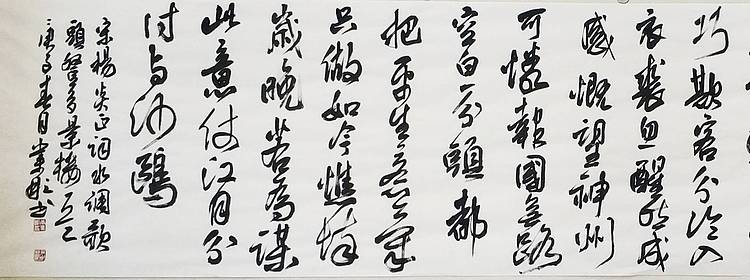 巧欺客分冷入
衣裘忽醒然成
感慨望神州
可憐報國無路
空白一分頭都
把平生意氣
只做如今憔悴
歲晚若為謀
此意仗江月分
付与沙鷗
宋楊炎正詞水調歌
頭登多景樓
庚子春月書